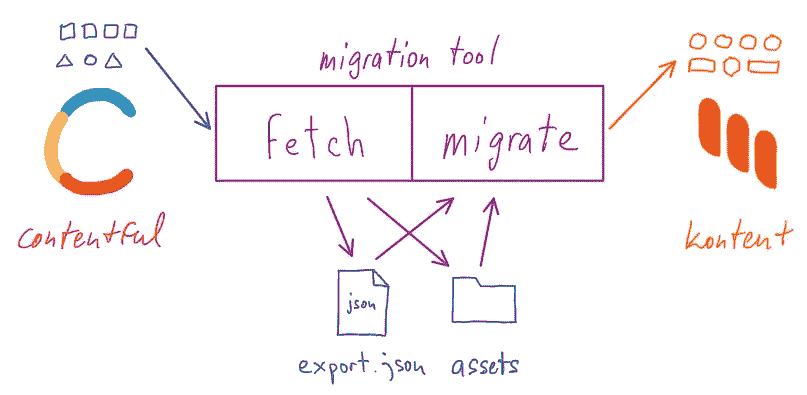 migration tool
fetch
migrate
contentful
kontent
json
export.json
assets